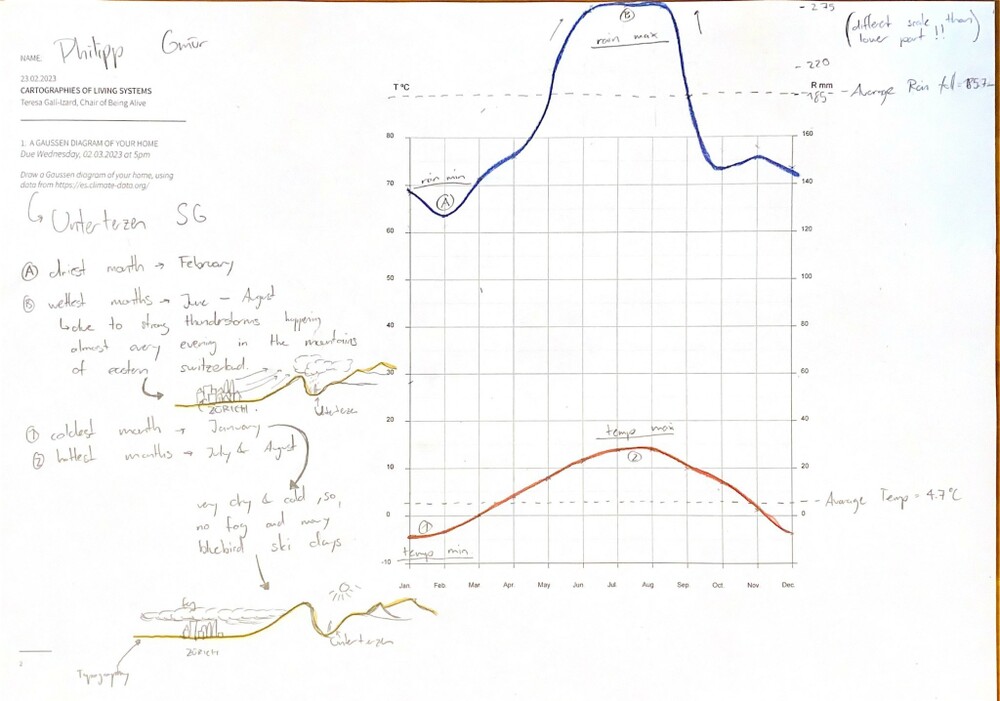 NAME: Philipp Gmür
23.02.2023
CARTOGRAPHIES OF LIVING SYSTEMS
Teresa Galí-Izard, Chair of Being Alive
1. A GAUSSEN DIAGRAM OF YOUR HOME
Due Wednesday, 02.03.2023 at 5pm
Draw a Gaussen diagram of your home, using
data from https://es.climate-data.org/
Unterterzen SG
A driest month → February
B wettest months → June - August
due to strong thunderstorms happening
almost every evening in the mountains
of eastern switzerland.
ZÜRICH
Unterterzen
1 coldest month → January
2 hottest months → July & August
very dry & cold, so,
no fog and many
bluebird ski days
fog
ZÜRICH
Unterterzen
Topography
2
T °C
80
70
60
50
40
30
20
10
0
-10
Jan.
Feb.
Mar
Apr.
May
Jun.
Jul.
Aug
Sep.
Oct.
Nov.
Dec.
rain min
A
B
rain max
temp max
2
1
temp min
- 275
(different scale than
lower part!!)
- 220
R mm
- 185 - Average Rain fall =
160
140
120
100
80
60
40
20
0
- Average Temp = 4.7°C